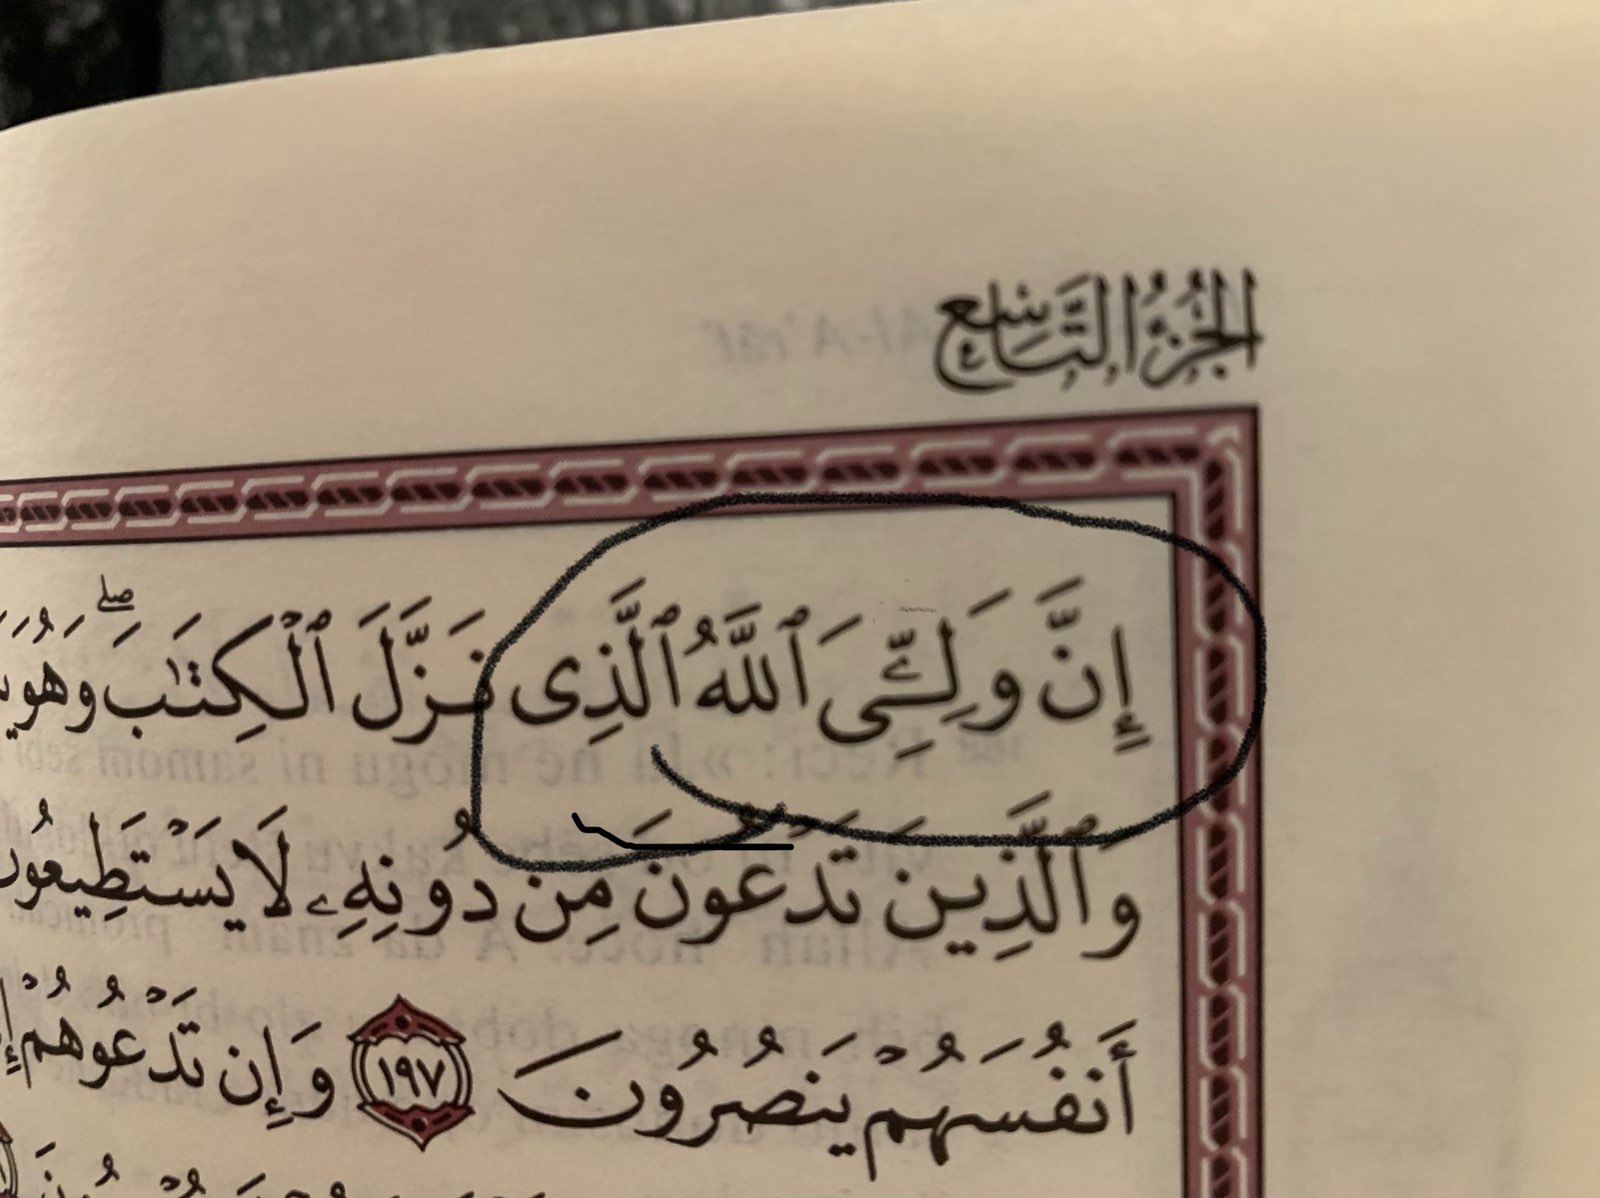 الجُزْءُ التَّاسِعُ
إِنَّ وَلِـِّۧىَ ٱللَّهُ ٱلَّذِى نَزَّلَ ٱلْكِتَٰبَ ۖ وَهُوَ
وَٱلَّذِينَ تَدْعُونَ مِن دُونِهِۦ لَا يَسْتَطِيعُونَ
أَنفُسَهُمْ يَنصُرُونَ ١٩٧ وَإِن تَدْعُوهُمْ